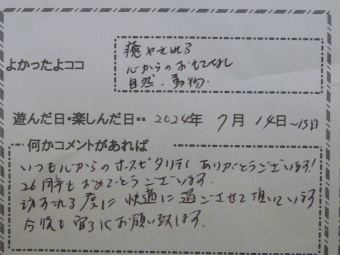 癒やされる
よかったよココ
心からのおもてなし
自然・動物
遊んだ日・楽しんだ日・・ 2024年 7月 14日〜15日
何かコメントがあれば
いつも心からのホスピタリティ ありがとうございます!
26周年もおめでとうございます。
訪ずれる度に 快適に過ごさせて頂いています
今後も宜しくお願い致します。